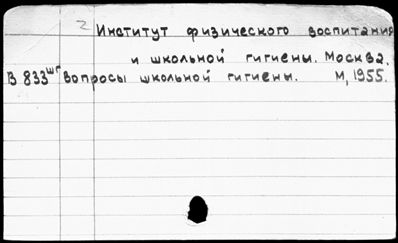 2 Институт физического воспитания
и школьной гигиены. Москва.
В 833 шг Вопросы школьной гигиены. М, 1955.